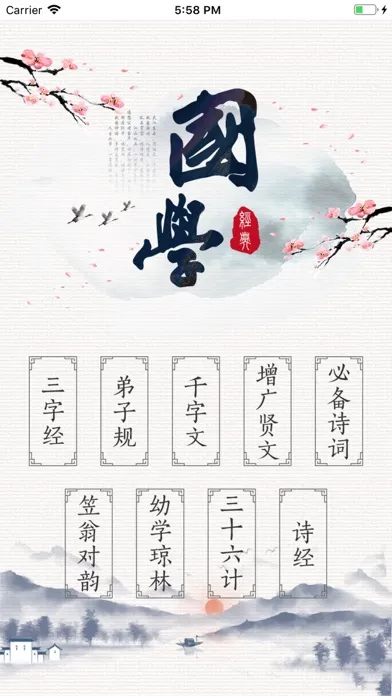 Carrier
5:58 PM
國學
經典
三字经
弟子规
千字文
增广贤文
必备诗词
笠翁对韵
幼学琼林
三十六计
诗经